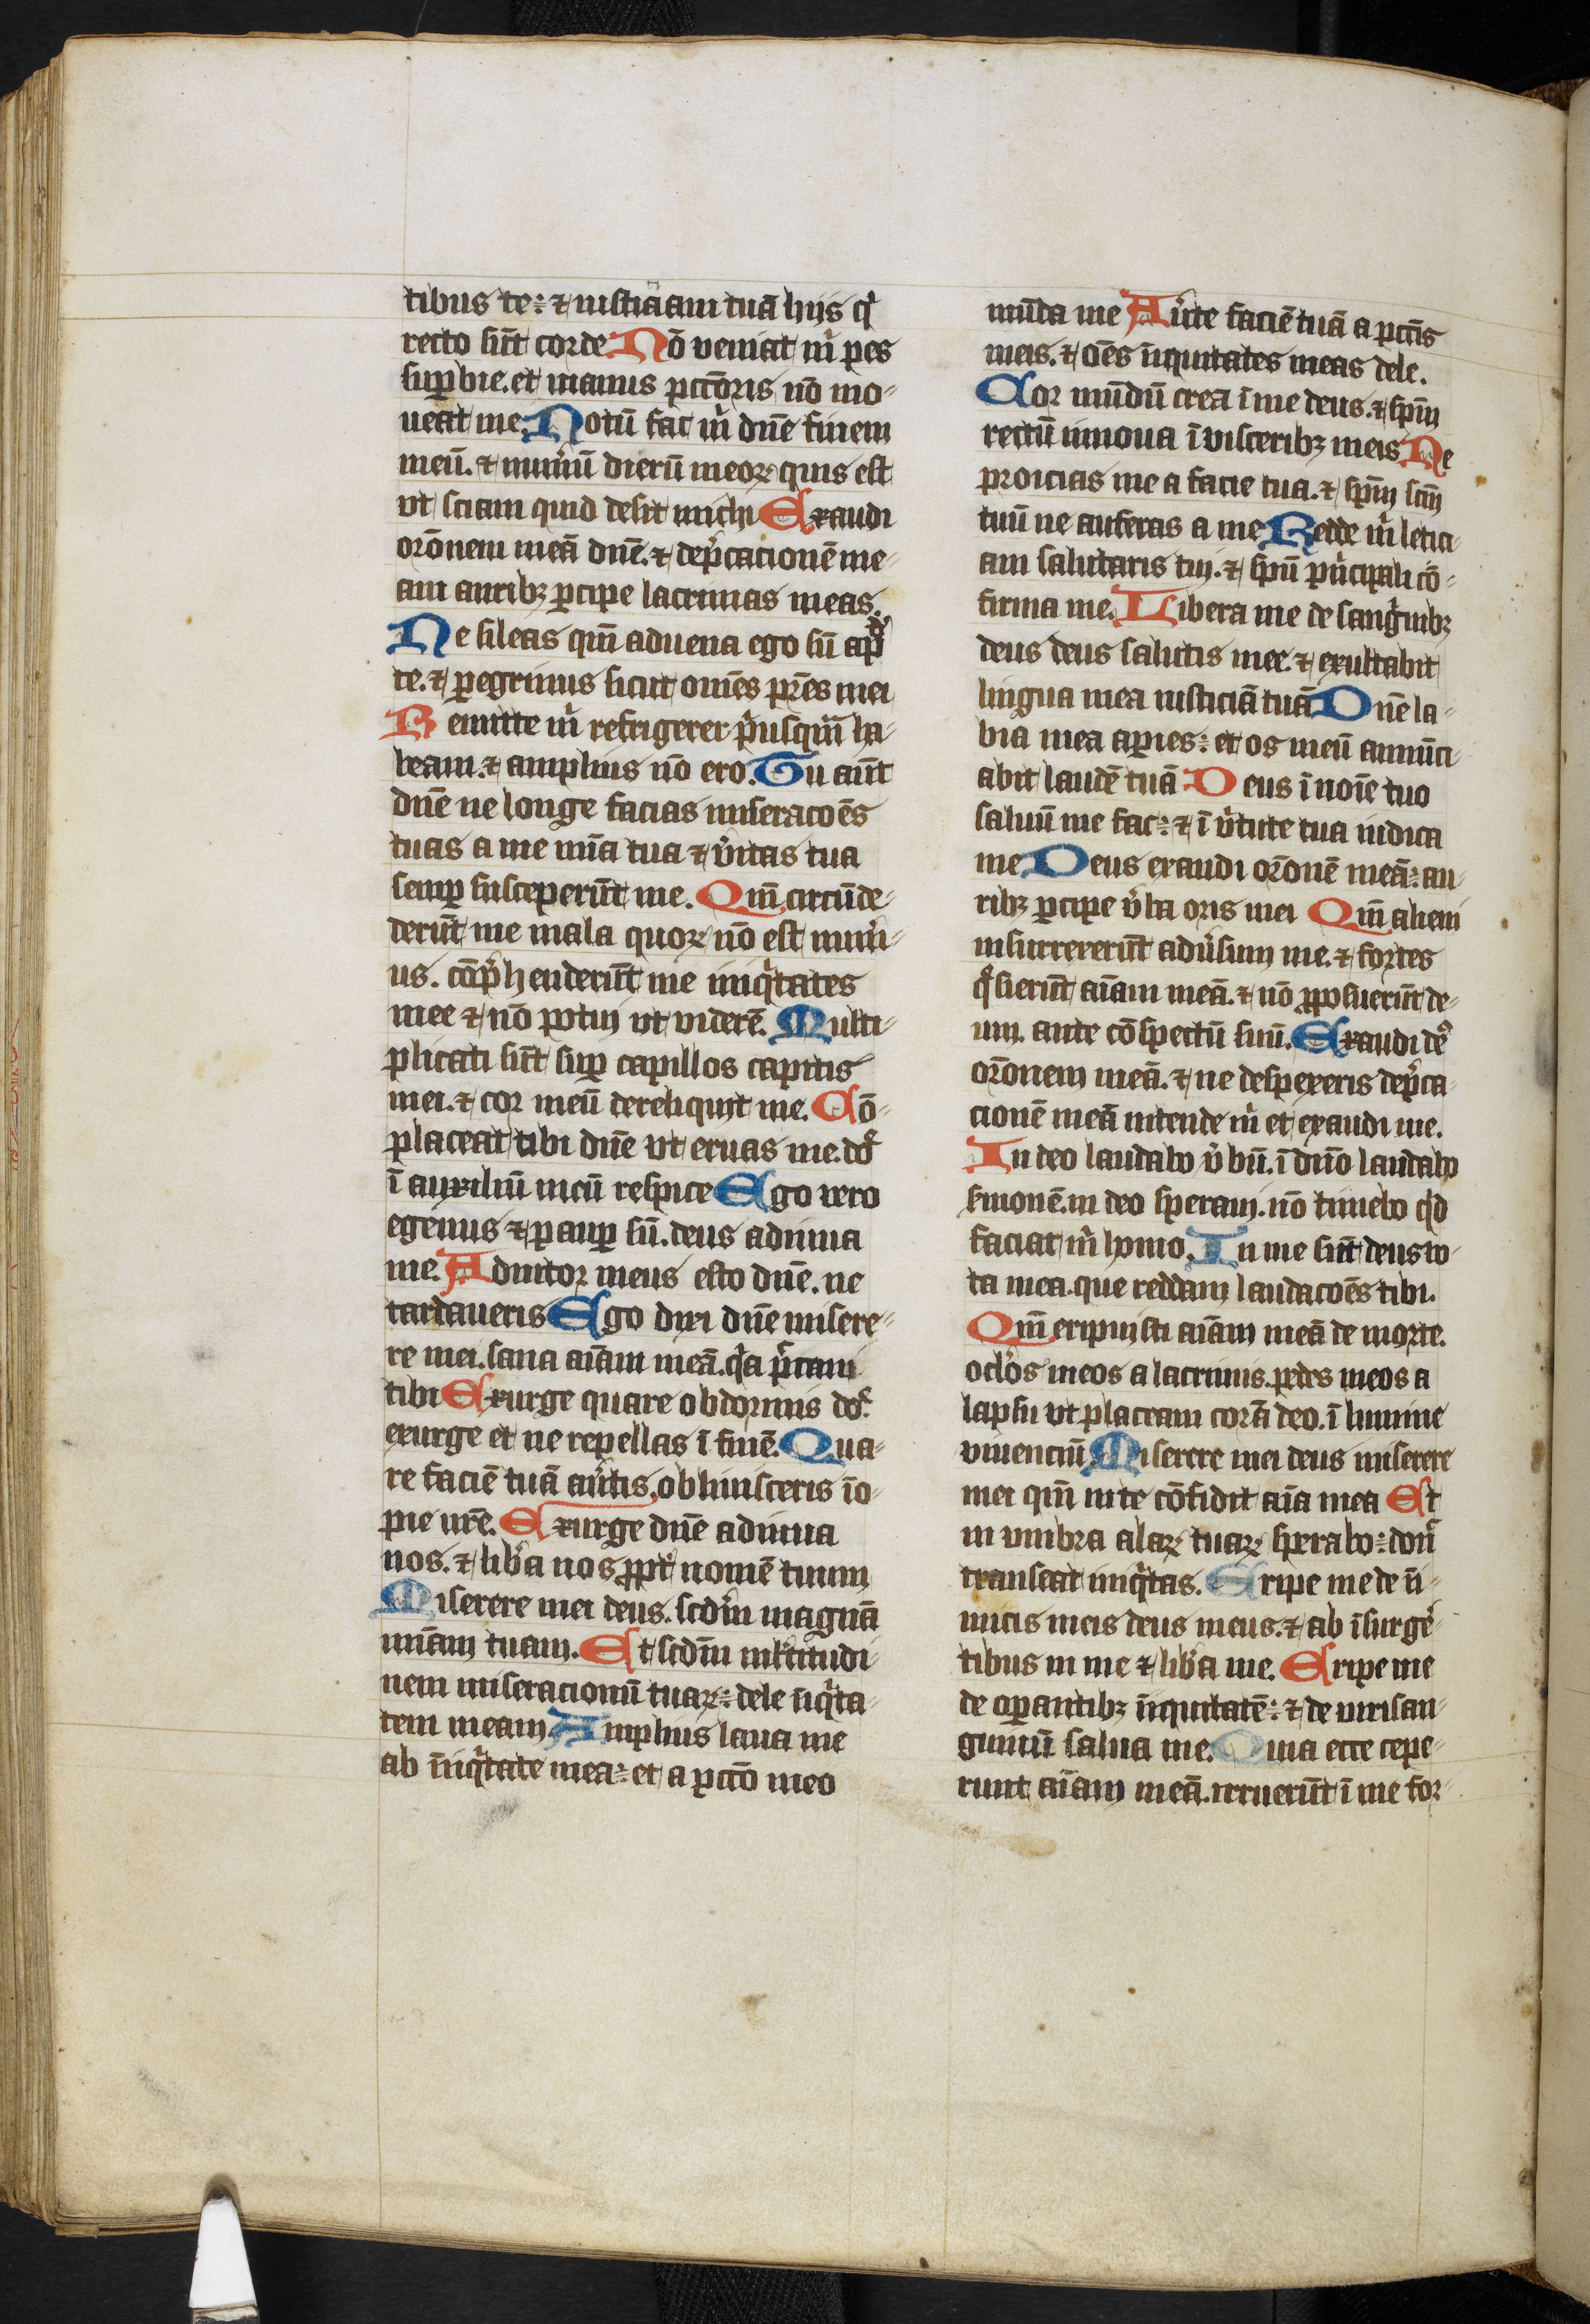 tibus te: ⁊ iusticiam tuā hijs qͥ
recto sūt corde Nō veniat mͥ pes
suꝑbie. et manus pctōris nō mo-
ueat me. Notū fac mͥ dn̄e finem
meū. ⁊ nūm̄ū dierū meoꝝ quis est
vt sciam quid desit michi Exaudi
orōnem meā dn̄e. ⁊ dep̄cacionē me-
am auribꝫ ꝑcipe lacrimas meas.
Ne sileas qm̄ aduena ego sū apᵈ
te. ⁊ ꝑegrinus sicut omēs pr̄es mei
Remitte mͥ refrigerer pͥusqm̄ ha-
beam. ⁊ amplius nō ero. Tu aūt
dn̄e ne longe facias miseracōes
tuas a me mīa tua ⁊ v̓itas tua
semꝑ susceperūt me. Qm̄ circūde-
derūt me mala quoꝝ nō est num̓-
us. cōp̓henderūt me iniqͥtates
mee ⁊ nō potui vt viderē. Multi-
plicati sūt suꝑ capillos capitis
mei. ⁊ cor meū dereliquit me. Cō-
placeat tibi dn̄e vt eruas me. dn̄e
ī auxiliū meū respice Ego vero
egenus ⁊ pauꝑ sū. deus adiuua
me. Adiutor meus esto dn̄e. ne
tardaueris Ego dixi dn̄e misere-
re mei. sana aīam meā. qͥa p̄caui
tibi Exurge quare obdormis dn̄e.
exurge et ne repellas ī finē. Qua-
re faciē tuā au̓tis, obliuisceris īo-
pie nr̄e. Exurge dn̄e adiuua
nos. ⁊ lib̓a nos ꝓpt̓ nomē tuum
Miserere mei deus. scd̄m magnā
mīam tuam. Et scd̄m ml̓titudi-
nem miseracionū tuaꝝ: dele īiqͥta-
tem meam Amplius laua me
ab īniqͥtate mea: et a pctō meo
mūda me Au̓te faciē tuā a pctīs
meis. ⁊ oēs iniquitates meas dele.
Cor mūdū crea ī me deus. ⁊ spm̄
rectū innoua ī visceribꝫ meis Ne
proicias me a facie tua. ⁊ spm̄ scm̄
tuū ne auferas a me Redde mͥ letici-
am salutaris tui. ⁊ spū pͥncipali cō-
firma me. Libera me de sangͥnibꝫ
deus deus salutis mee. ⁊ exultabit
lingua mea iusticiā tuā Dn̄e la-
bia mea aꝑies: et os meū annūci-
abit laudē tuā Deus ī noīe tuo
saluū me fac: ⁊ ī v̓tute tua iudica
me Deus exaudi orōnē meā: au-
ribꝫ ꝑcipe v̓ba oris mei Qm̄ alieni
insurrexerūt adu̓sum me. ⁊ fortes
q̄sierūt aīam meā. ⁊ nō ꝓposuerūt de-
um. ante cōspectū suū. Exaudi deꝰ
orōnem meā. ⁊ ne despexeris dep̄ca-
cionē meā intende mͥ et exaudi me.
In deo laudabo v̓bū. ī dn̄o laudabo
s̓monē. in deo speraui. nō timebo qͥd
faciat mͥ homo. In me sūt deus vo-
ta mea. que reddam laudacōes tibi.
Qm̄ eripuisti aīam meā de morte.
oclōs meos a lacrimis. pedes meos a
lapsu vt placeam corā deo. ī lumine
viuenciū Miserere mei deus miserere
mei qm̄ in te cōfidit aīa mea Et
in vmbra alaꝝ tuaꝝ sperabo: don̄
transeat iniqͥtas. Eripe me de īi-
micis meis deus meus. ⁊ ab īsurgē-
tibus in me ⁊ lib̓a me. Eripe me
de oꝑantibꝫ iniquitatē: ⁊ de viri san-
guinū salua me. Quia ecce cepe-
runt aīam meā. irruerūt ī me for-